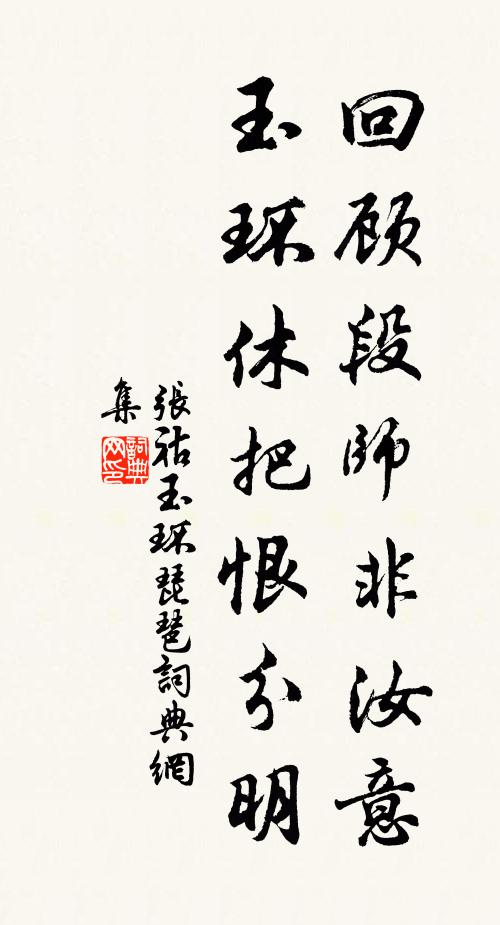 回顾段师非汝意
玉环休把恨分明
張祜玉环琵琶詞典網
集
詞典網印